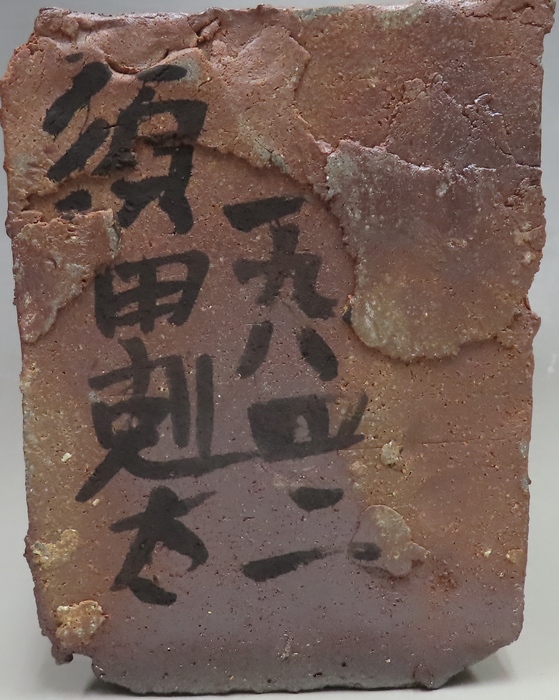 一九八四二
須田剋太